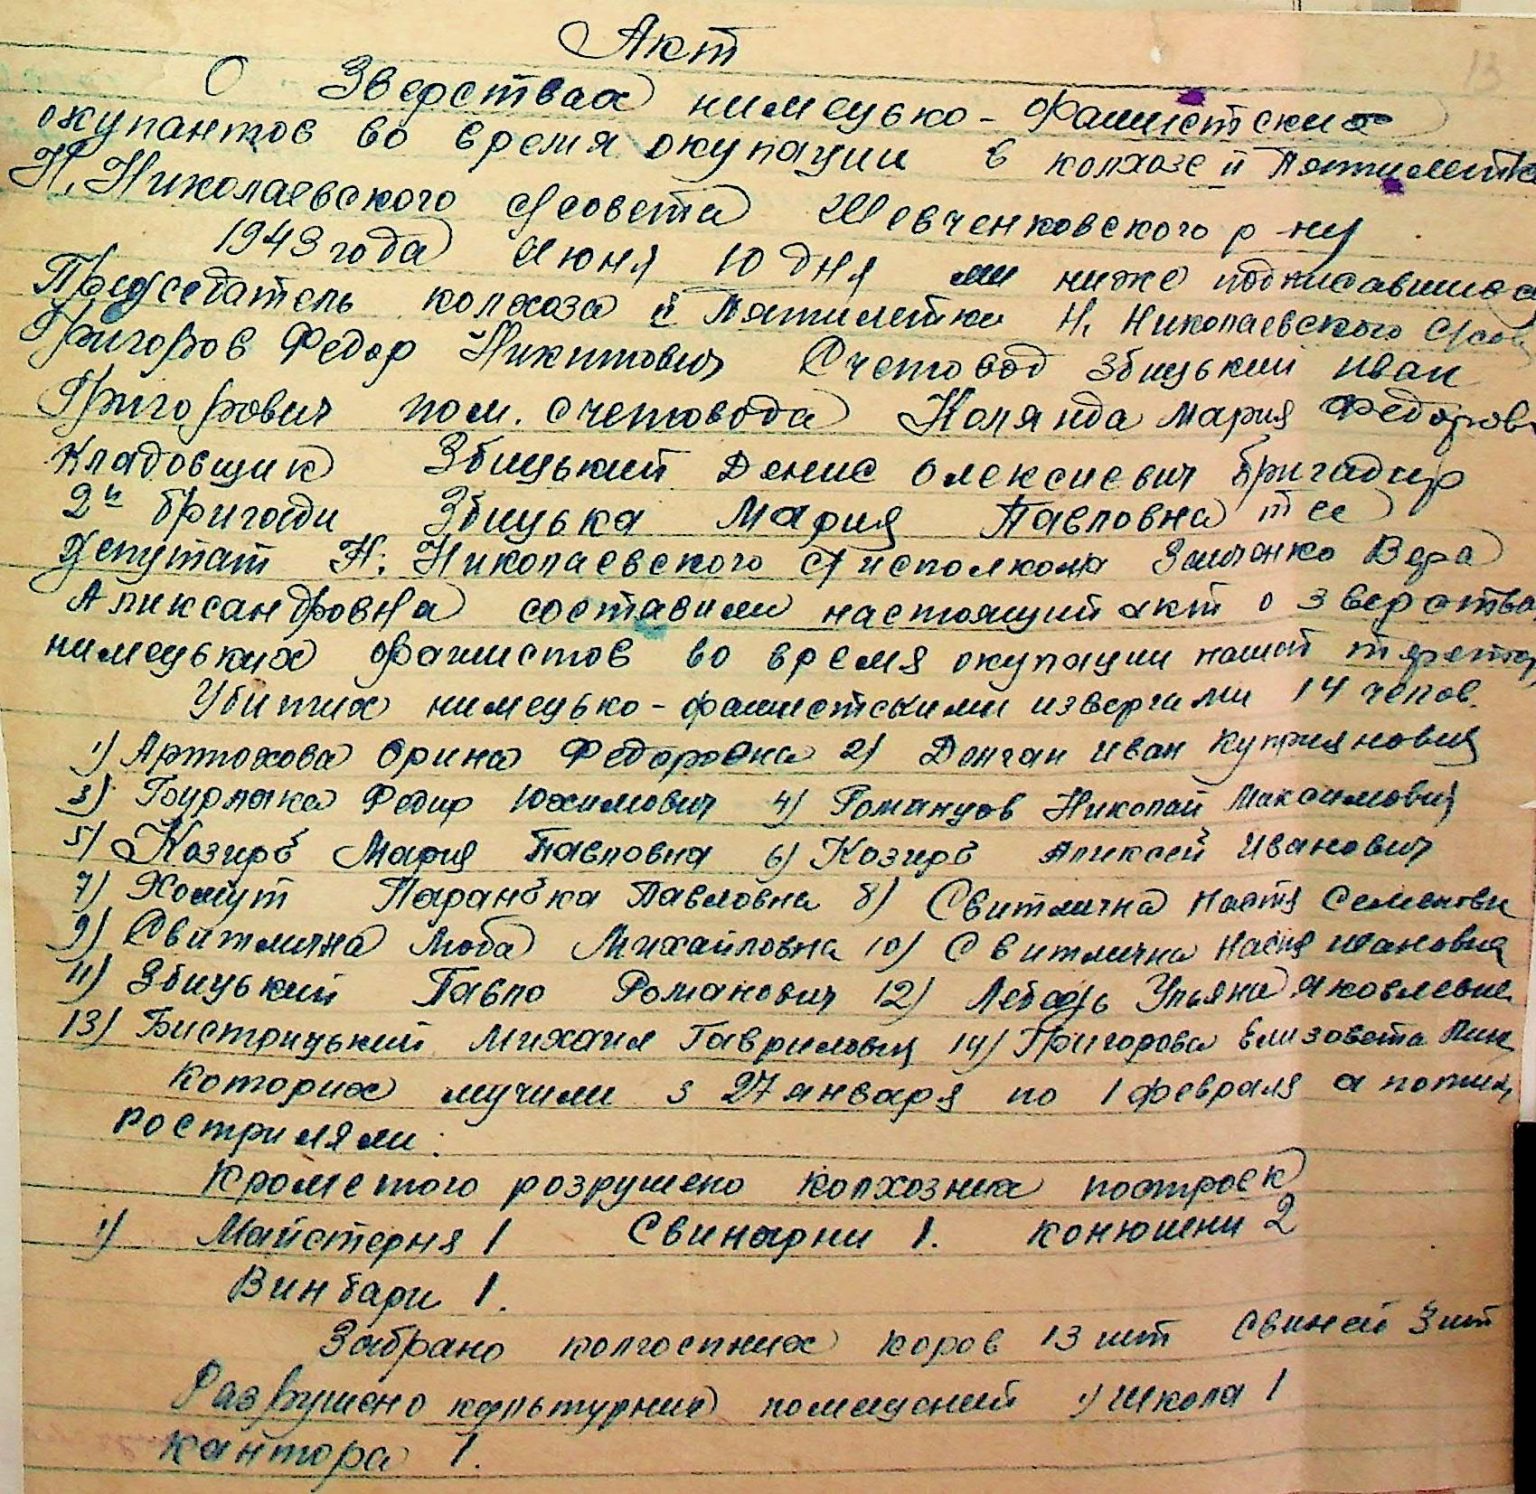 13
Акт
О Зверствах нимецько-фашистских
окупантов во время окупации в колхозе II Пятилетка
Н. Николаевского с/совета Шевченковского р-ну
1943 года Июня 10 дня ми ниже подписавшиеся
Председатель колхоза II Пятилетки Н. Николаевского с/сов
Григоров Федор Никитович Счетовод Збицький иван
Григорович пом. счетовода Колянда Мария Федоров
Кладовщик Збицький Денис Олексиевич бригадир
2й бригади Збицька Мария Павловна
депутат Н. Николаевского с/исполкома Заиченко Вера
Аликсандровна составили настоящий акт о зверства
нимецьких фашистов во время окупации нашой
Убитих нимецько-фашистскими извергами 14 челов.
1) Артюхова Орина Федоровна 2) Долган Иван Куприянович
3) Бурлака Федир Юхимович 4) Романцов Николай Максимович
5) Козирь Мария Павловна 6) Козирь Аликсей Иванович
7) Хомут Паранька Павловна 8) Свитлична Настя Семеновн
9) Свитлична Люба Михайловна 10) Свитлична Настя ивановна
11) Збицький Павло Романович 12) Лебедь Ульяна Яковлевна
13) Бистрицький Михаил Гаврилович 14) Григорова Елизовета
Которих мучили з 27 января по 1 февраля а потим
рострилял и.
Кроме того розрушено колхозних построек
1) Майстерня 1 Свинарни 1. конюшени 2
Винбари 1.
Забрано колгоспних коров 13 шт свиней 3 шт
Разрушено культурних помещений 1) школа 1
кантора 1.